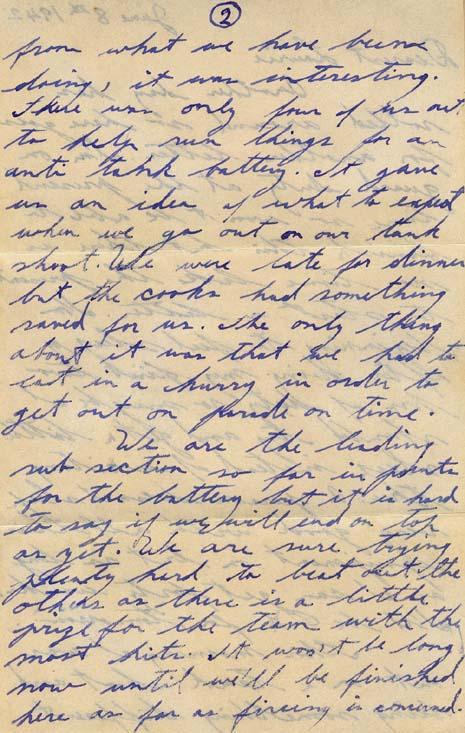 2
from what we have been
doing, it was interesting.
There was only four of us out
to help run things for an
anti tank battery. It gave
us an idea of what to expect
when we go out on our tank
shoot. We were late for dinner
but the cooks had something
saved for us. The only thing
about it was that we had to
eat in a hurry in order to
get out on parade on time.
We are the leading
sub section so far in points
for the battery but it is hard
to say if we will end on top
as yet. We are sure trying
plenty hard to beat out the
others as there is a little
prize for the team with the
most hits. It won't be long
now until we'll be finished
here as far as fireing is concerned.